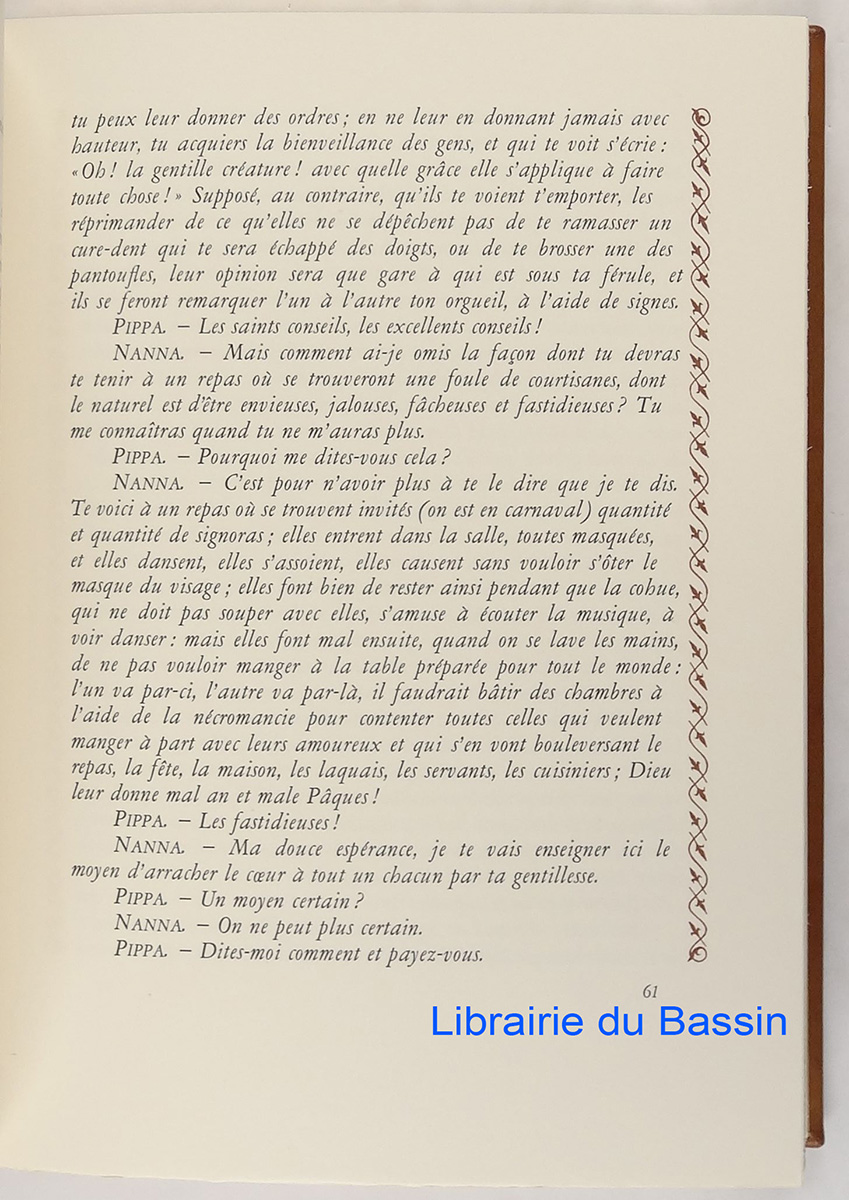 tu peux leur donner des ordres ; en ne leur en donnant jamais avec
hauteur, tu acquiers la bienveillance des gens, et qui te voit s'écrie :
« Oh ! la gentille créature ! avec quelle grâce elle s'applique à faire
toute chose ! » Supposé, au contraire, qu'ils te voient t'emporter, les
réprimander de ce qu'elles ne se dépêchent pas de te ramasser un
cure-dent qui te sera échappé des doigts, ou de te brosser une des
pantoufles, leur opinion sera que gare à qui est sous ta férule, et
ils se feront remarquer l'un à l'autre ton orgueil, à l'aide de signes.
PIPPA. – Les saints conseils, les excellents conseils !
NANNA. – Mais comment ai-je omis la façon dont tu devras
te tenir à un repas où se trouveront une foule de courtisanes, dont
le naturel est d'être envieuses, jalouses, fâcheuses et fastidieuses ? Tu
me connaîtras quand tu ne m'auras plus.
PIPPA. – Pourquoi me dites-vous cela ?
NANNA. – C'est pour n'avoir plus à te le dire que je te dis.
Te voici à un repas où se trouvent invités (on est en carnaval) quantité
et quantité de signoras ; elles entrent dans la salle, toutes masquées,
et elles dansent, elles s'assoient, elles causent sans vouloir s'ôter le
masque du visage ; elles font bien de rester ainsi pendant que la cohue,
qui ne doit pas souper avec elles, s'amuse à écouter la musique, à
voir danser : mais elles font mal ensuite, quand on se lave les mains,
de ne pas vouloir manger à la table préparée pour tout le monde :
l'un va par-ci, l'autre va par-là, il faudrait bâtir des chambres à
l'aide de la nécromancie pour contenter toutes celles qui veulent
manger à part avec leurs amoureux et qui s'en vont bouleversant le
repas, la fête, la maison, les laquais, les servants, les cuisiniers ; Dieu
leur donne mal an et male Pâques !
PIPPA. – Les fastidieuses !
NANNA. – Ma douce espérance, je te vais enseigner ici le
moyen d'arracher le cœur à tout un chacun par ta gentillesse.
PIPPA. – Un moyen certain ?
NANNA. – On ne peut plus certain.
PIPPA. – Dites-moi comment et payez-vous.
61
Librairie du Bassin